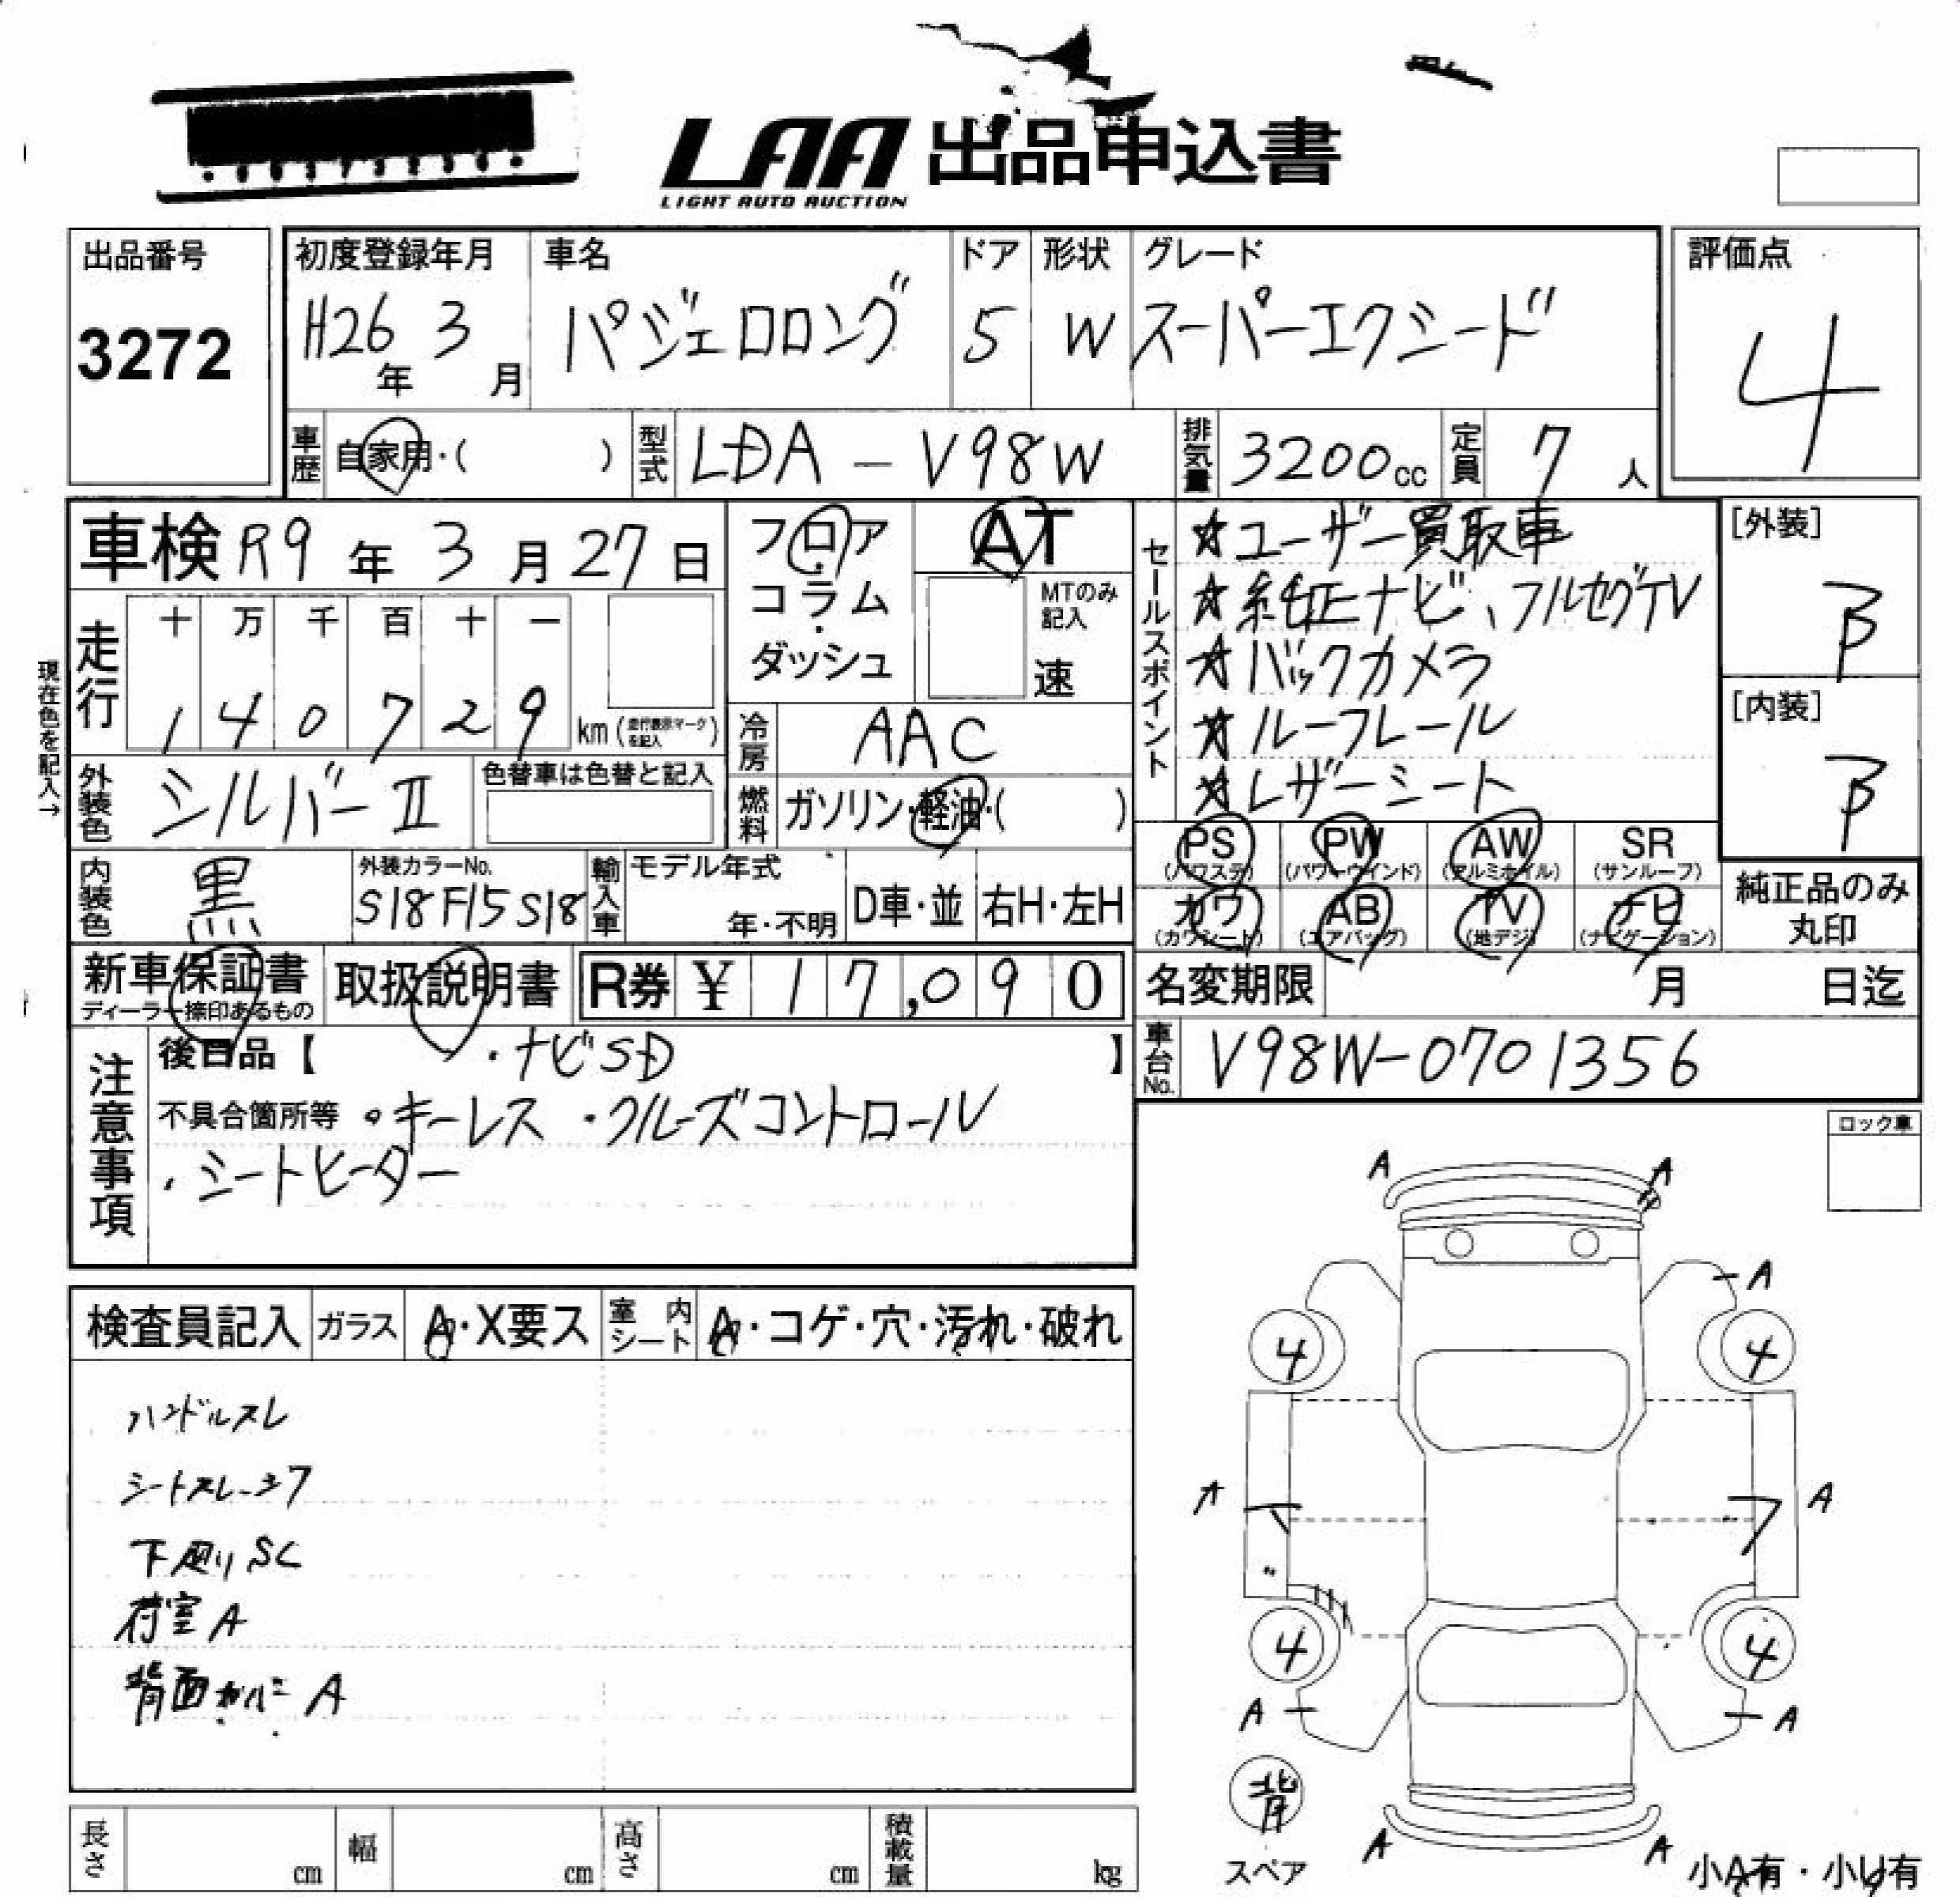 LAA 出品申込書
LIGHT AUTO AUCTION
出品番号
3272
初度登録年月
H26年 3月
車名
パジェロロング
ドア
5
形状
W
グレード
スーパーエクシード
評価点
4
車歴 自家用・( )
型式 LDA-V98W
排気量 3200cc
定員 7人
車検 R9年 3月 27日
フロア
・
コラム
・
ダッシュ
AT
MTのみ記入
速
現在色を記入→
走行
十 万 千 百 十 一
1 4 0 7 2 9 km (走行表示マークを記入)
冷房 AAC
燃料 ガソリン・軽油・( )
外装色 シルバーⅡ
色替車は色替と記入
内装色 黒
外装カラーNo.
S18F15S18
輸入車
モデル年式
年・不明
D車・並
右H・左H
セールスポイント
☆ユーザー買取車
☆純正ナビ、フルセグTV
☆バックカメラ
☆ルーフレール
☆レザーシート
[外装]
B
[内装]
B
PS (パワステ)
PW (パワーウインド)
AW (アルミホイル)
SR (サンルーフ)
カワ (カワシート)
AB (エアバッグ)
TV (地デジ)
ナビ (ナビゲーション)
純正品のみ
丸印
新車保証書
ディーラー捺印あるもの
取扱説明書
R券 ¥ 17,090
名変期限 月 日迄
車台No. V98W-0701356
注意事項
後日品【 ・ナビSD 】
不具合箇所等 ・キーレス ・クルーズコントロール
・シートヒーター
ロック車
検査員記入
ガラス A・X要ス
室内シート A・コゲ・穴・汚れ・破れ
ハンドルスレ
下廻りSC
荷室A
背面カバーA
A A
A
4 4
A A
4 4
A A
背
スペア
A A
小A有・小U有
長さ cm
幅 cm
高さ cm
積載量 kg